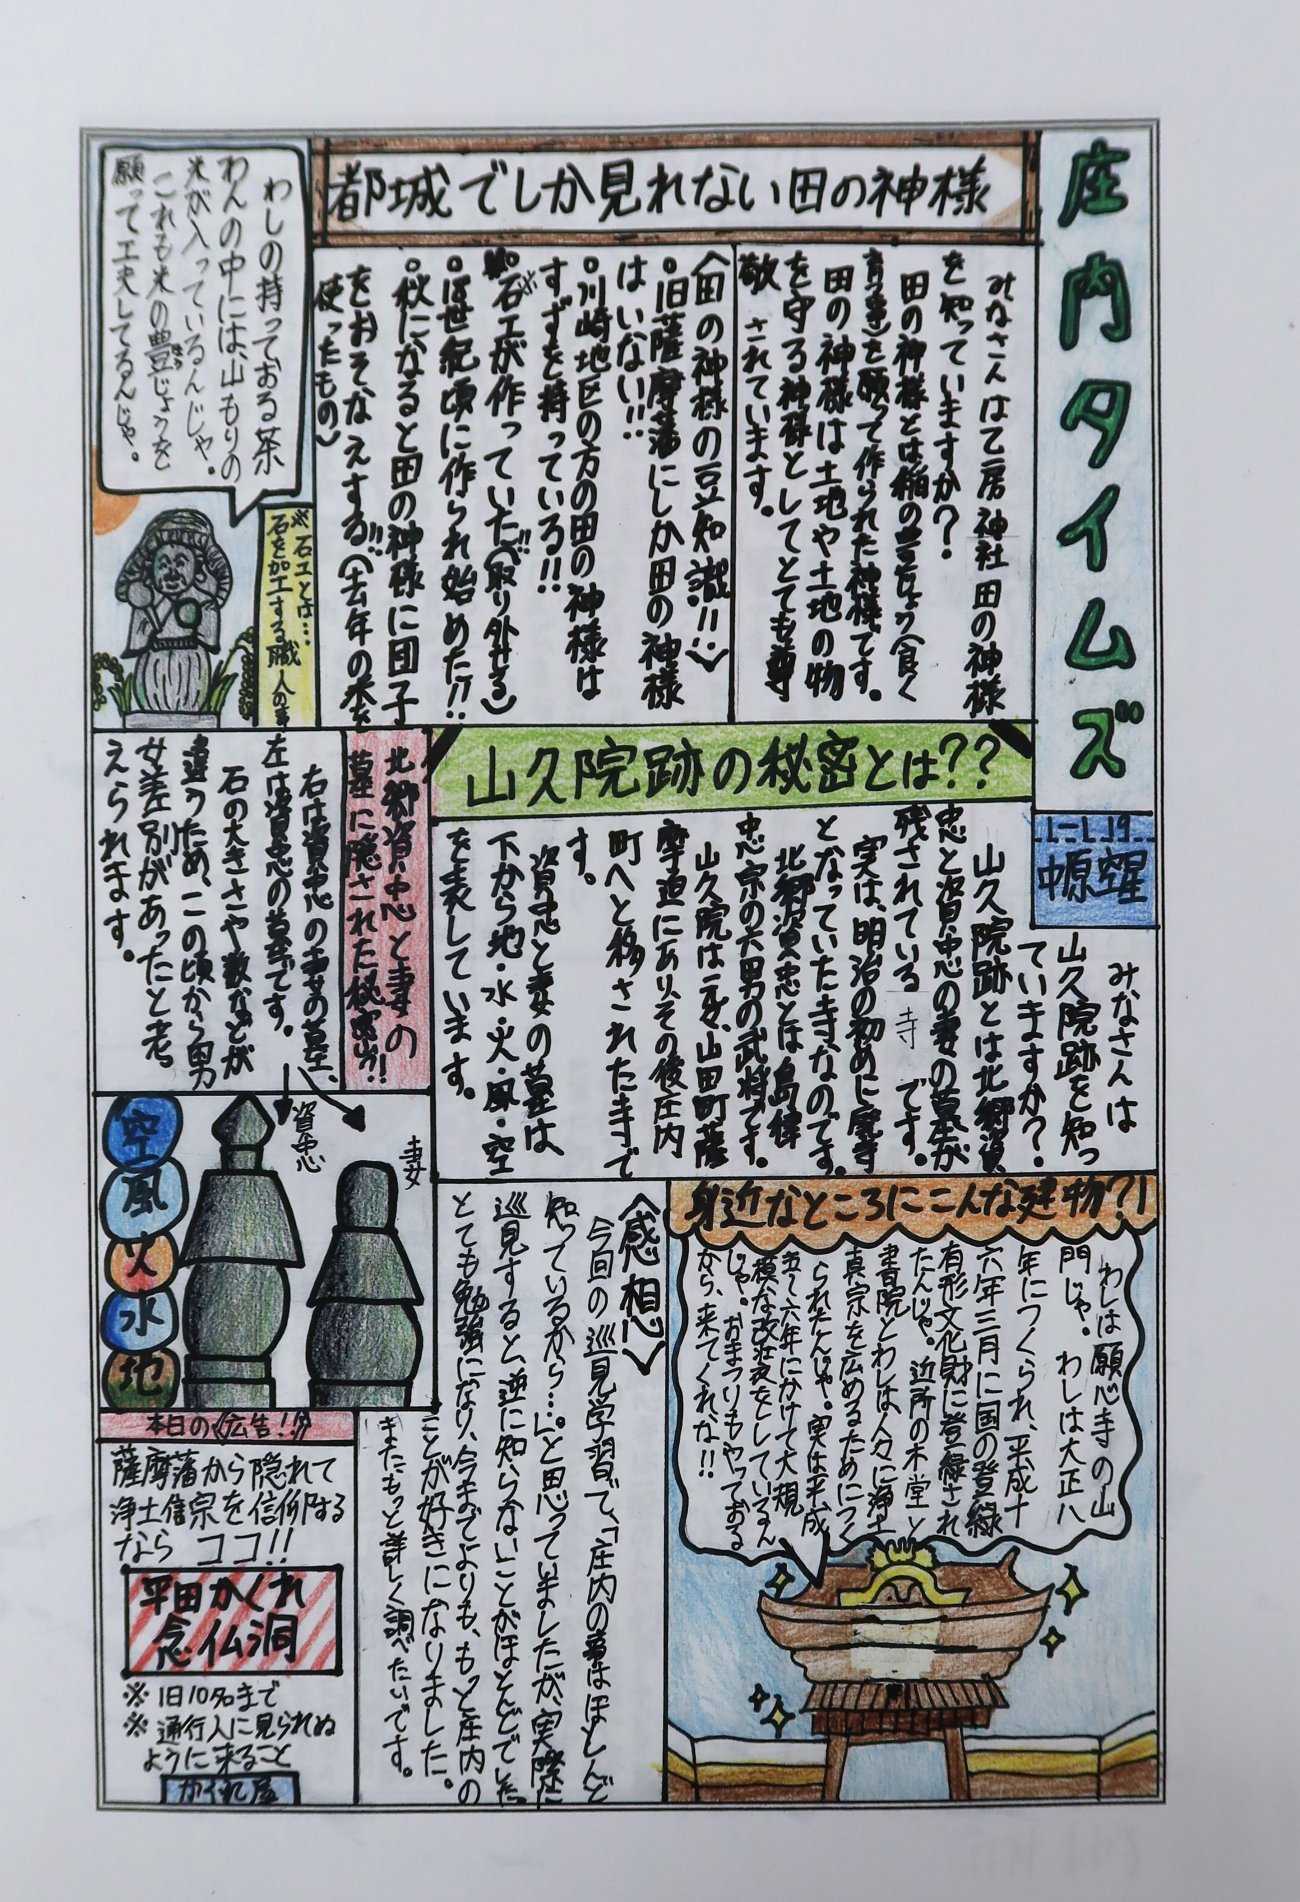 庄内タイムズ
1-1 19
中原空星
都城でしか見れない田の神様
みなさんは乙房神社田の神様
を知っていますか?
田の神様とは稲の豊じょう(食く
を願って作られた神様です。
田の神様は土地や土地の物
を守る神様としてとても尊
敬されています。
〈田の神様の豆知識!!〉
・旧薩摩藩にしか田の神様
はいない!!
・川崎地区の方の田の神様は
すずを持っている!!
・石工※が作っていた!!(取り外せる)
世紀頃に作られ始めた!!
・秋になると田の神様に団子
をおそなえする!!(去年の米を
使ったもの)
わしの持っておる茶
わんの中には、山もりの
米が入っているんじゃ。
これも米の豊じょうを
願って工夫してるんじゃ。
※石工とは…
石を加工する職人の事
山久院跡の秘密とは??
みなさんは
山久院跡を知っ
ていますか?
山久院跡とは北郷資
忠と資忠の妻の墓が
残されている寺です。
実は、明治の初めに廃寺
となっていた寺なのです。
北郷資忠とは島津
忠宗の六男の武将です。
山久院は元々、山田町薩
摩迫にあり、その後庄内
町へと移された寺で
す。
資忠と妻の墓は、
下から地・水・火・風・空
を表しています。
北郷資忠と妻の
墓に隠された秘密?!
右は資忠の妻の墓、
左は資忠の墓です。
石の大きさや数などが
違うため、この頃から男
女差別があったと考
えられます。
資忠
妻
空
風
火
水
地
身近なところにこんな建物?!
わしは願心寺の山
門じゃ。わしは大正八
年につくられ、平成十
六年三月に国の登録
有形文化財に登録され
たんじゃ。近所の本堂と
書院とわしは人々に浄土
真宗を広めるためにつく
られたんじゃ。実は平成
五~六年にかけて大規
模な改装をしているん
じゃ。おまつりもやっておる
から、来てくれな!!
〈感想〉
今回の巡見学習で、「庄内の事はほとんど
知っているから…。」と思っていましたが、実際に
巡見すると、逆に知らないことがほとんどでした。
とても勉強になり、今までよりも、もっと庄内の
ことが好きになりました。
またもっと詳しく調べたいです。
本日の《広告!!》
薩摩藩から隠れて
浄土真宗を信仰する
なら ココ!!
平田かくれ
念仏洞
※1日10名まで
※通行人に見られぬ
ように来ること
かくれ屋